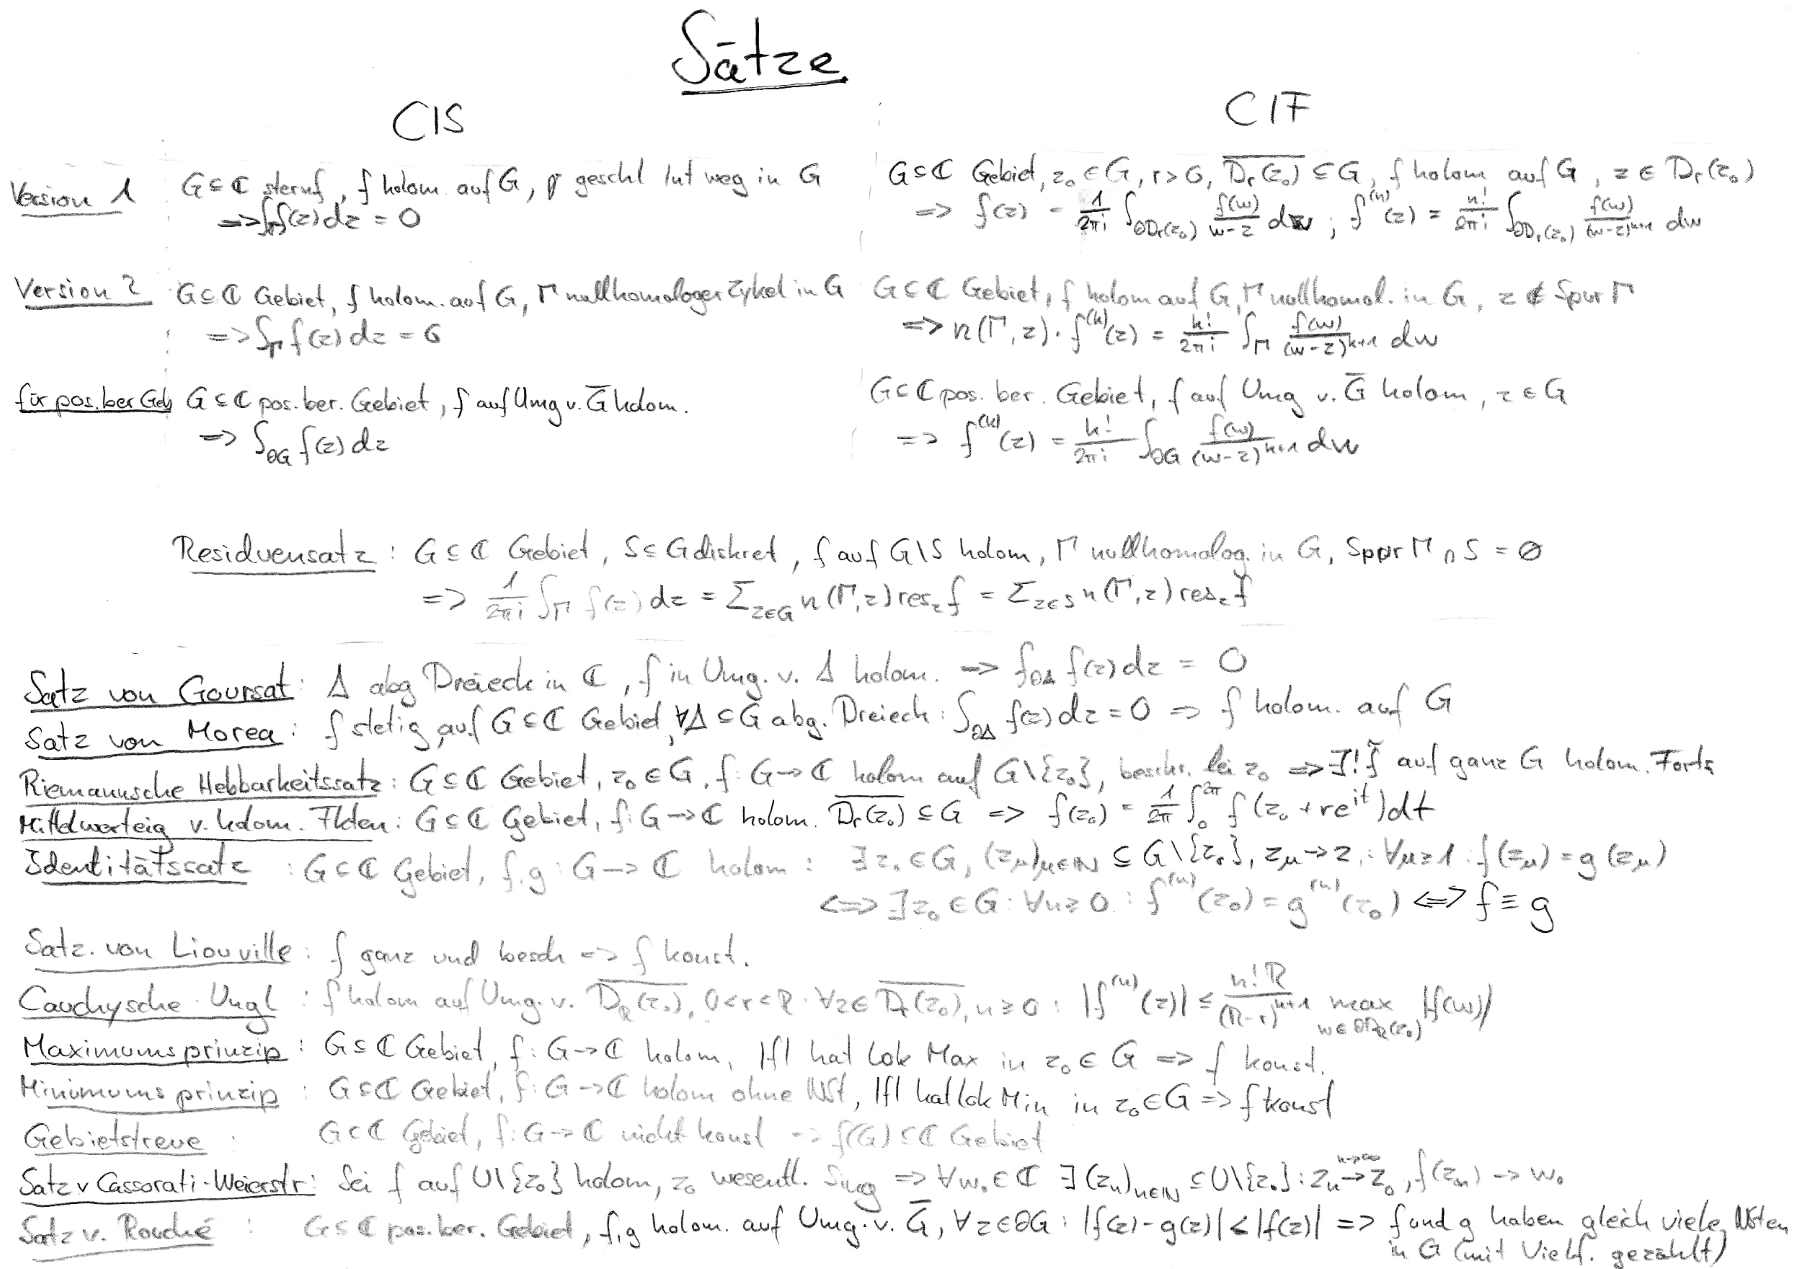 Sätze
CIS
CIF
Version 1
G ⊆ ℂ sternf, f holom. auf G, γ geschl Intweg in G
=> ∫_γ f(z) dz = 0
G ⊆ ℂ Gebiet, z₀ ∈ G, r > 0, \overline{D_r(z₀)} ⊆ G, f holom auf G, z ∈ D_r(z₀)
=> f(z) = \frac{1}{2πi} ∫_{∂D_r(z₀)} \frac{f(w)}{w-z} dw ; f^{(n)}(z) = \frac{n!}{2πi} ∫_{∂D_r(z₀)} \frac{f(w)}{(w-z)^{n+1}} dw
Version 2
G ⊆ ℂ Gebiet, f holom. auf G, Γ nullhomologer Zykel in G
=> ∫_Γ f(z) dz = 0
G ⊆ ℂ Gebiet, f holom auf G, Γ nullhomol. in G, z ∉ Spur Γ
=> n(Γ, z) · f^{(k)}(z) = \frac{k!}{2πi} ∫_Γ \frac{f(w)}{(w-z)^{k+1}} dw
für pos. ber Geb
G ⊆ ℂ pos. ber. Gebiet, f auf Umg v. \overline{G} holom.
=> ∫_{∂G} f(z) dz
G ⊆ ℂ pos. ber. Gebiet, f auf Umg v. \overline{G} holom, z ∈ G
=> f^{(k)}(z) = \frac{k!}{2πi} ∫_{∂G} \frac{f(w)}{(w-z)^{k+1}} dw
Residuensatz : G ⊆ ℂ Gebiet, S ⊆ G diskret, f auf G\S holom, Γ nullhomolog. in G, Spur Γ ∩ S = ∅
=> \frac{1}{2πi} ∫_Γ f(z) dz = Σ_{z∈G} n(Γ, z) res_z f = Σ_{z∈S} n(Γ, z) res_z f
Satz von Goursat : Δ abg Dreieck in ℂ, f in Umg. v. Δ holom. => ∫_{∂Δ} f(z) dz = 0
Satz von Morea : f stetig auf G ⊆ ℂ Gebiet, ∀Δ ⊆ G abg. Dreieck : ∫_{∂Δ} f(z) dz = 0 => f holom. auf G
Riemannsche Hebbarkeitssatz : G ⊆ ℂ Gebiet, z₀ ∈ G, f: G → ℂ holom auf G\{z₀}, beschr. bei z₀ => ∃! \tilde{f} auf ganz G holom. Forts
Mittelwerteig v. holom. Fkten : G ⊆ ℂ Gebiet, f: G → ℂ holom. \overline{D_r(z₀)} ⊆ G => f(z₀) = \frac{1}{2π} ∫_0^{2π} f(z₀ + re^{it}) dt
Identitätssatz : G ⊆ ℂ Gebiet, f, g : G → ℂ holom : ∃ z₀ ∈ G, (z_n)_{n∈ℕ} ⊆ G\{z₀}, z_n → z₀ : ∀n ≥ 1 : f(z_n) = g(z_n)
<=> ∃ z₀ ∈ G : ∀n ≥ 0 : f^{(n)}(z₀) = g^{(n)}(z₀) <=> f ≡ g
Satz. von Liouville : f ganz und besch => f konst.
Cauchysche Ungl : f holom auf Umg. v. \overline{D_R(z₀)}, 0 < r < R · ∀z ∈ \overline{D_r(z₀)}, n ≥ 0 : |f^{(n)}(z)| ≤ \frac{n! R}{(R-r)^{n+1}} max_{w∈∂D_R(z₀)} |f(w)|
Maximumsprinzip : G ⊆ ℂ Gebiet, f : G → ℂ holom, |f| hat lok Max in z₀ ∈ G => f konst.
Minimumsprinzip : G ⊆ ℂ Gebiet, f : G → ℂ holom ohne NSt, |f| hat lok Min in z₀ ∈ G => f konst
Gebietstreue : G ⊆ ℂ Gebiet, f : G → ℂ nicht konst => f(G) ⊆ ℂ Gebiet
Satz v Cassorati-Weierstr : Sei f auf U\{z₀} holom, z₀ wesentl. Sing => ∀w₀ ∈ ℂ ∃ (z_n)_{n∈ℕ} ⊆ U\{z₀} : z_n \xrightarrow{n→∞} z₀, f(z_n) → w₀
Satz v. Rouché : G ⊆ ℂ pos. ber. Gebiet, f, g holom. auf Umg. v. \overline{G}, ∀z ∈ ∂G : |f(z) - g(z)| < |f(z)| => f und g haben gleich viele NSten
in G (mit Vielf. gezählt)